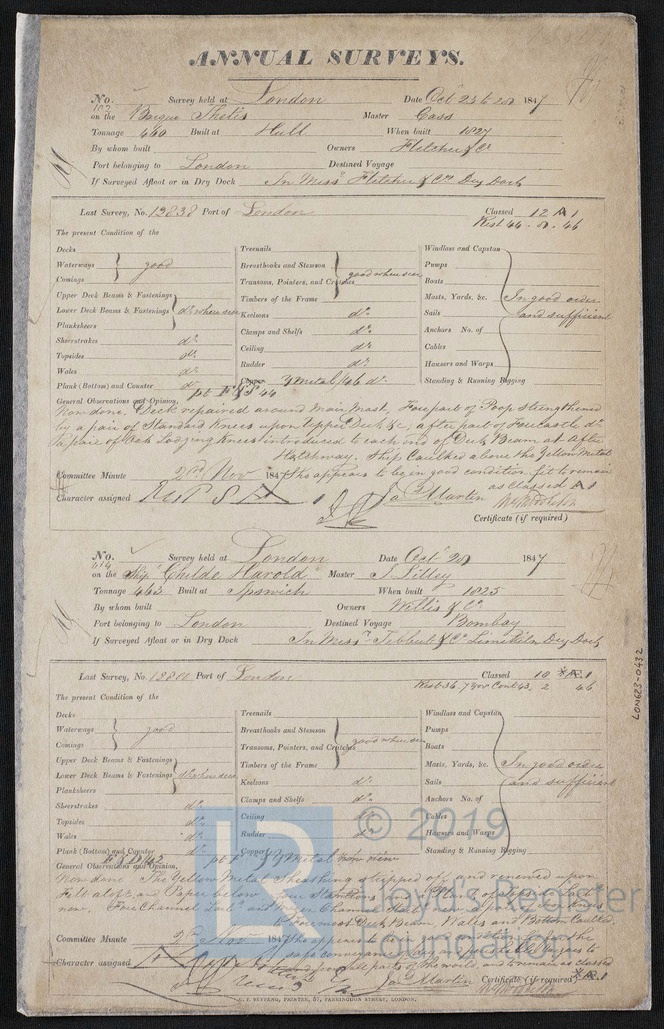 ANNUAL SURVEYS.
No. 102 Survey held at London Date Oct 23 & 28 1847
on the Barque Thetis Master Gass
Tonnage 460 Built at Hull When built 1827
By whom built Owners Fletcher & Co
Port belonging to London Destined Voyage
If Surveyed Afloat or in Dry Dock In Messrs Fletcher & Cos Dry Dock
Last Survey, No. 13838 Port of London Classed 12 A 1
Rest 44. 46
The present Condition of the
Decks
Waterways good
Comings
Upper Deck Beams & Fastenings
Lower Deck Beams & Fastenings do when seen
Planksheers
Sheerstrakes do
Topsides do
Wales do
Plank (Bottom) and Counter do
Treenails
Breasthooks and Stemson
Transoms, Pointers, and Crutches good when seen
Timbers of the Frame
Keelsons do
Clamps and Shelfs do
Ceiling do
Rudder do
Copper Y Metal /46 do
Windlass and Capstan
Pumps
Boats
Masts, Yards, &c. In good order
Sails and sufficient
Anchors No. of
Cables
Hausers and Warps
Standing & Running Rigging
pt F & S 44
General Observations and Opinion,
Now done. Deck repaired around Main Mast, Fore part of Poop Strengthened
by a pair of Standard Knees upon Upper Deck &c, after part of Forecastle do
a pair of Oak Lodging Knees introduced to each end of Deck Beam at After
Hatchway. Ship Caulked above the Yellow Metal
Committee Minute 2nd Nov 1847 She appears to be in good condition fit to remain
as classed A 1
Character assigned 1 Jas Martin
Certificate (if required)
No. 614 Survey held at London Date Oct 28 1847
on the Ship "Childe Harold" Master J. Lilley
Tonnage 463 Built at Ipswich When built 1825
By whom built Owners Willis & Co
Port belonging to London Destined Voyage Bombay
If Surveyed Afloat or in Dry Dock In Messrs Tebbut & Co Limekiln Dry Dock
Last Survey, No. Port of London Classed 10 A 1
Rest 36. 7 yrs Cont 43. 2 46
The present Condition of the
Decks
Waterways good
Comings
Upper Deck Beams & Fastenings
Lower Deck Beams & Fastenings do when seen
Planksheers
Sheerstrakes do
Topsides do
Wales do
Plank (Bottom) and Counter do
Treenails
Breasthooks and Stemson
Transoms, Pointers, and Crutches good when seen
Timbers of the Frame
Keelsons do
Clamps and Shelfs do
Ceiling do
Rudder do
Copper Y Metal now new
Windlass and Capstan
Pumps
Boats
Masts, Yards, &c. In good order
Sails and sufficient
Anchors No. of
Cables
Hausers and Warps
Standing & Running Rigging
General Observations and Opinion,
Now done. The Yellow Metal Sheathing stripped off and renewed upon
Felt aloft, and Paper below
new. Fore Channel
Deck Beam, Wales and Bottom Caulked
Committee Minute 2nd Nov 1847 She appears to
safe conveyance of dry and perishable Cargoes to
Character assigned and from all parts of the world, and to remain as classed
Jas Martin Certificate (if required) A 1
C. F. SEYFANG, PRINTER, 57, FARRINGDON STREET, LONDON.
LON623-0432
LR
© 2019
Lloyd's Register
Foundation